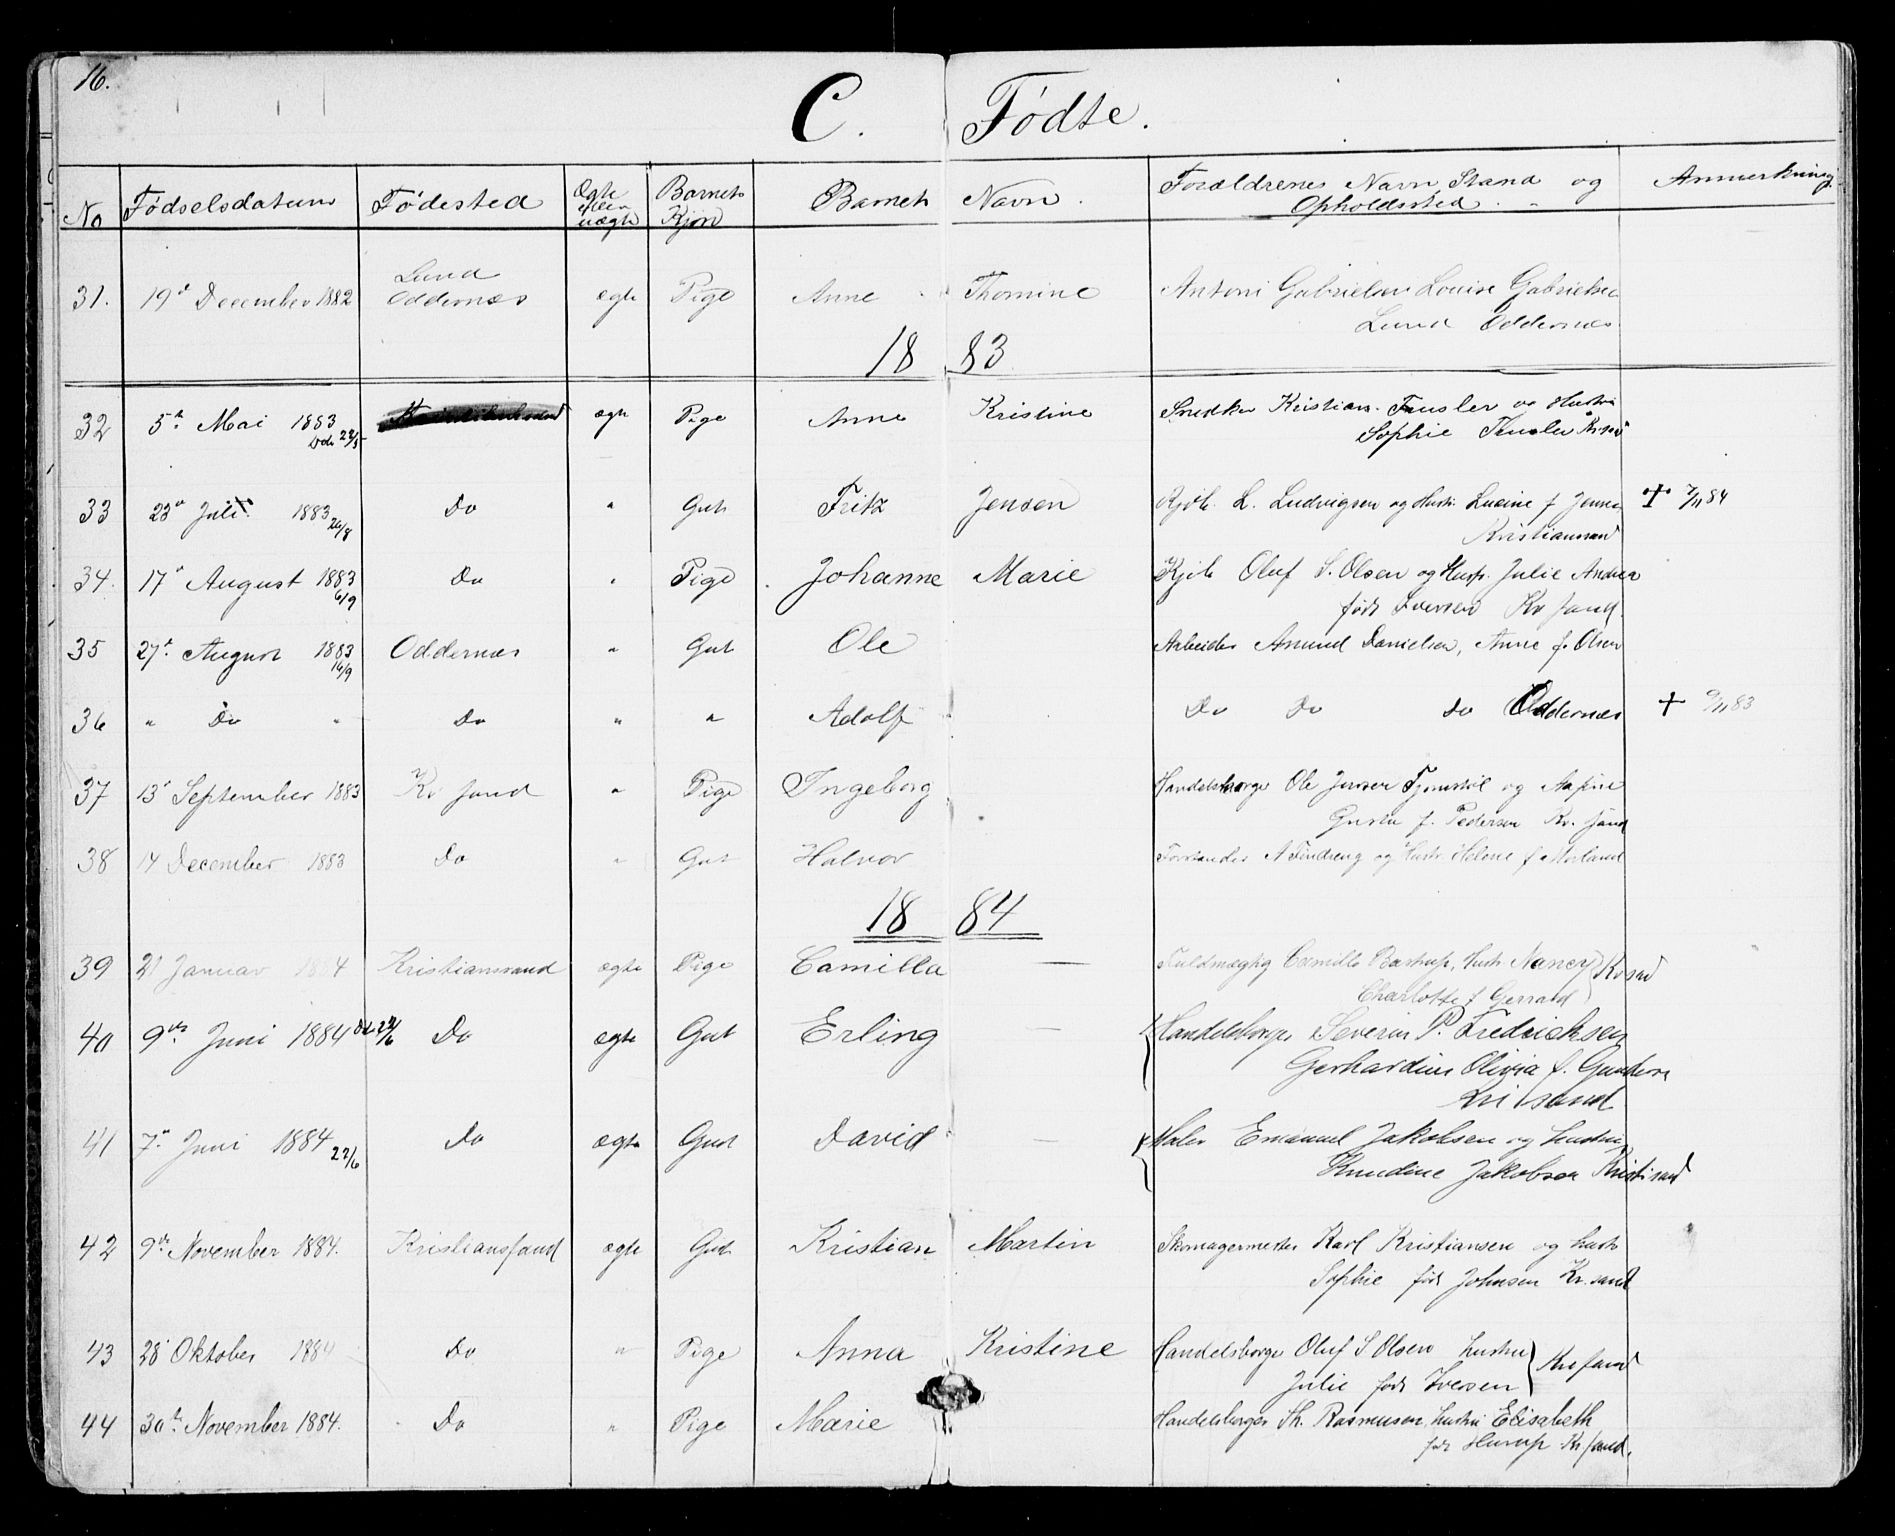 16.
C. Fødte.
No Fødselsdatum Fødested Ægte eller uægte Barnets Kjøn Barnets Navn. Forældrenes Navn, Stand og Opholdssted. Anmerkning.
31. 19de December 1882 Lund Oddernæs ægte Pige Anne Thomine Antoni Gabrielsen Louise Gabrielsen
Lund Oddernæs
18 83
32 5te Mai 1883 ægte Pige Anne Kristine Snedker Kristian Fensler og Hustru
Sophie Fensler Kr.sand
33 23de Juli 1883 26/8 Do " Gut Fritz Jensen Kjøb. L. Ludvigsen og Hustr. Lucine f Jensen + 7/11 84
Kristianssand
34. 17de August 1883 6/9 Do " Pige Johanne Marie Kjøb Oluf S. Olsen og Hustr. Julie Andrea
født Iversen Kr sand.
35 27de August 1883 16/9 Oddernæs " Gut Ole Arbeider Amund Danielsen, Anne f. Olsen
36 " Do " Do " " Adolf Do Do do Oddernæs + 9/11 83
37 13de September 1883 Kr sand " Pige Ingeborg Handelsborge Ole Jensen og
f. Pedersen Kr. sand
38 14 December 1883 Do " Gut Halvor Forstander A Findseng og Hustr. Helene f Morland
18 84
39 21 Januar 1884 Kristianssand ægte Pige Camilla — Fuldmægtig Camillo Bastrup, Hustr Nancy } Kr sand
Charlotte f Gerrard
40 9de Juni 1884 22/6 Do ægte Gut Erling — { Handelsborger Severin P. Fredricksen
Gerhardine Olivia f. Gunders
Kri sand
41 7de Juni 1884 22/6 Do ægte Gut David — { Maler Emanuel Jakobsen og hustru
Knudine Jakobsen Kristi sand
42 9de November 1884. Kristianssand ægte Gut Kristian Martin Skomagermester Karl Kristiansen og hustr
Sophie født Johnsen Kr. sand
43 28 Oktober 1884 Do " Pige Anna Kristine Handelsborge Oluf S Olsen hustru } Kr sand
Julie født Iversen
44 30te November 1884. Do " Pige Marie Handelsborger Th. Rasmusen hustru Elisabeth
født Hurup Kr sand.